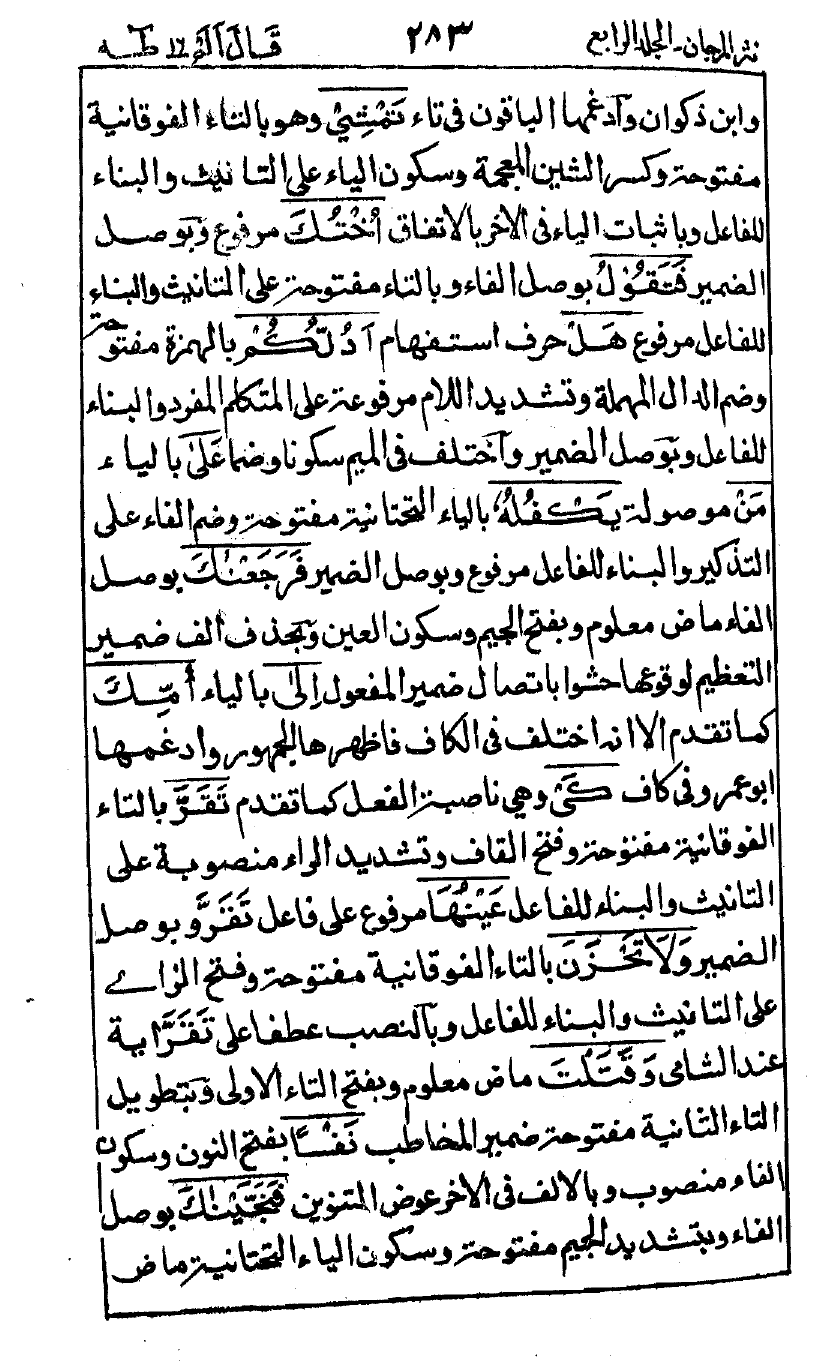 نثر المرجان ـ المجلد الرابع ٢٨٣ قَالَ اَلَم ١٦ طٰه
وابن ذكوان وآدغمها الباقون فى تاء تَمْشِىْ وهو بالتاء الفوقانية
مفتوحة وكسر الشين المعجمة وسكون الياء على التانيث والبناء
للفاعل وباثبات الياء فى الآخر بالاتفاق اُخْتُكَ مرفوع وبوصل
الضمير فَتَقُوْلُ بوصل الفاء وبالتاء مفتوحة على التانيث والبناء
للفاعل مرفوع هَلْ حرف استفهام اَدُلُّكُمْ بالهمزة مفتوحة
وضم الدال المهملة وتشديد اللام مرفوعة على المتكلم المفرد والبناء
للفاعل وبوصل الضمير وآختلف فى الميم سكونا وضما عَلٰى بالياء
مَنْ موصولة يَكْفُلُهٗ بالياء التحتانية مفتوحة وضم الفاء على
التذكير والبناء للفاعل مرفوع وبوصل الضمير فَرَجَعْنٰكَ بوصل
الفاء ماض معلوم وبفتح الجيم وسكون العين وبحذف الف ضمير
التعظيم لوقوعها حشوا باتصال ضمير المفعول اِلٰى بالياء اُمِّكَ
كما تقدم الا انه اختلف فى الكاف فاظهرها الجمهور وادغمها
ابو عمرو فى كاف كَىْ وهى ناصبة الفعل كما تقدم تَقَرَّ بالتاء
الفوقانية مفتوحة وفتح القاف وتشديد الراء منصوبة على
التانيث والبناء للفاعل عَيْنُهَا مرفوع على فاعل تَقَرَّ وبوصل
الضمير وَلَا تَحْزَنَ بالتاء الفوقانية مفتوحة وفتح الزاے
على التانيث والبناء للفاعل وبآلنصب عطفا على تَقَرَّ اٰية
عند الشامى وَقَتَلْتَ ماض معلوم وبفتح التاء الاولى وبتطويل
التاء الثانية مفتوحة ضمير المخاطب نَفْسًا بفتح النون وسكون
الفاء منصوب وبالالف فى الآخر عوض التنوين فَنَجَّيْنٰكَ بوصل
الفاء وبتشديد الجيم مفتوحة وسكون الياء التحتانية ماض